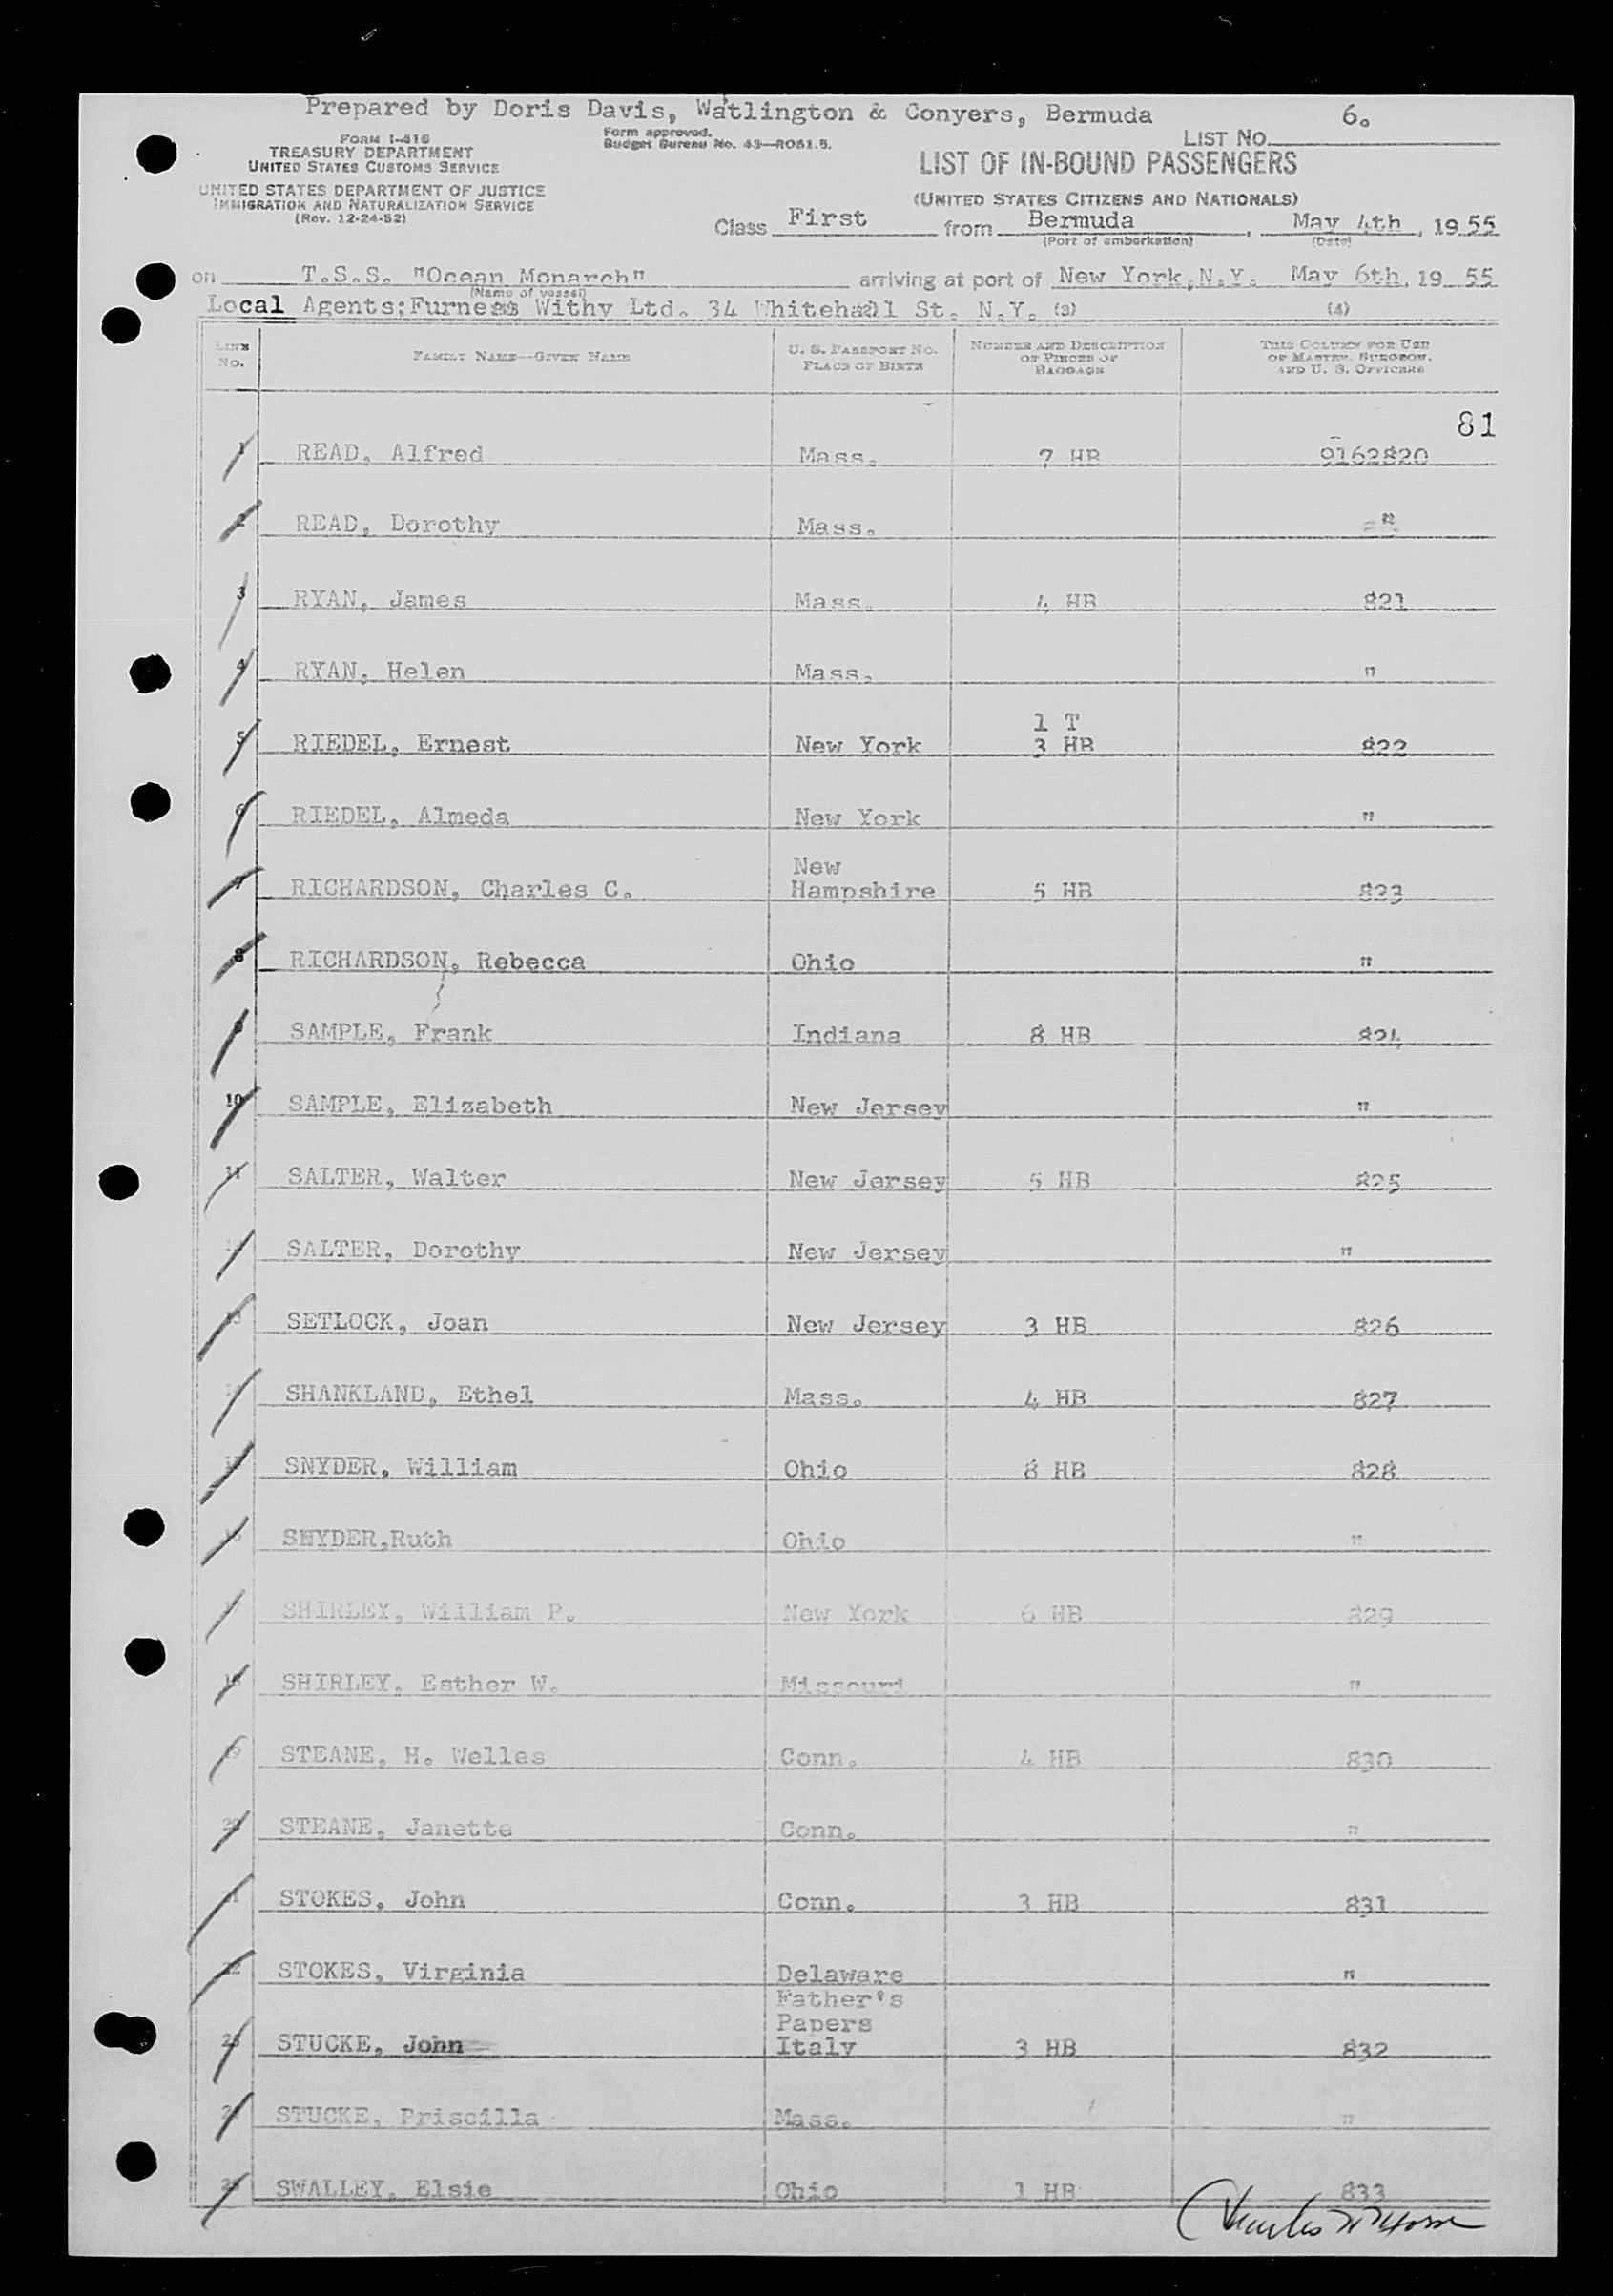 Prepared by Doris Davis, Watlington & Conyers, Bermuda 6.
FORM I-416
TREASURY DEPARTMENT
UNITED STATES CUSTOMS SERVICE
UNITED STATES DEPARTMENT OF JUSTICE
IMMIGRATION AND NATURALIZATION SERVICE
(Rev. 12-24-52)
Form approved.
Budget Bureau No. 43—RO51.5.
LIST NO.
LIST OF IN-BOUND PASSENGERS
(UNITED STATES CITIZENS AND NATIONALS)
Class First from Bermuda, May 4th, 1955
(Port of embarkation) (Date)
on T.S.S. "Ocean Monarch" arriving at port of New York, N.Y. May 6th, 1955
(Name of vessel)
Local Agents: Furness Withy Ltd. 34 Whitehall St. N.Y. (3) (4)
LINE No. FAMILY NAME—GIVEN NAME U. S. PASSPORT NO. PLACE OF BIRTH NUMBER AND DESCRIPTION OF PIECES OF BAGGAGE THIS COLUMN FOR USE OF MASTER, SURGEON, AND U. S. OFFICERS
81
1 READ, Alfred Mass. 7 HB 9162820
2 READ, Dorothy Mass. "
3 RYAN, James Mass. 4 HB 821
4 RYAN, Helen Mass. "
1 T
5 RIEDEL, Ernest New York 3 HB 822
6 RIEDEL, Almeda New York "
New
7 RICHARDSON, Charles C. Hampshire 5 HB 823
8 RICHARDSON, Rebecca Ohio "
9 SAMPLE, Frank Indiana 8 HB 824
10 SAMPLE, Elizabeth New Jersey "
11 SALTER, Walter New Jersey 5 HB 825
12 SALTER, Dorothy New Jersey "
13 SETLOCK, Joan New Jersey 3 HB 826
14 SHANKLAND, Ethel Mass. 4 HB 827
15 SNYDER, William Ohio 8 HB 828
16 SNYDER,Ruth Ohio "
17 SHIRLEY, William P. New York 6 HB 829
18 SHIRLEY, Esther W. Missouri "
19 STEANE, H. Welles Conn. 4 HB 830
20 STEANE, Janette Conn. "
21 STOKES, John Conn. 3 HB 831
22 STOKES, Virginia Delaware "
Father's
Papers
23 STUCKE, John Italy 3 HB 832
24 STUCKE, Priscilla Mass. "
25 SWALLEY, Elsie Ohio 1 HB 833
Charles